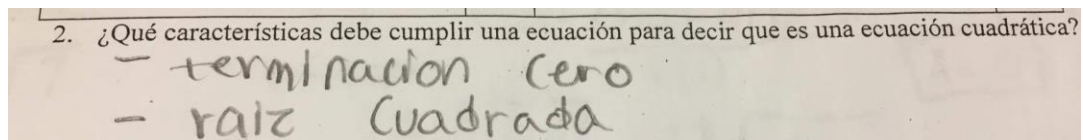 2. ¿Qué características debe cumplir una ecuación para decir que es una ecuación cuadrática?
- terminacion cero
- raiz cuadrada